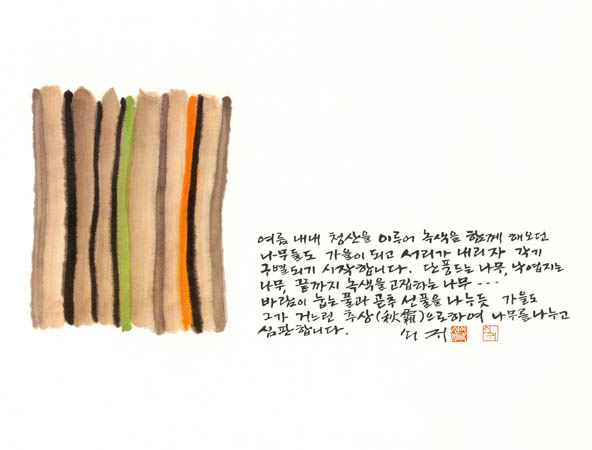 여름 내내 청산을 이루어 녹색을 함께 해오던
나무들도 가을이 되고 서리가 내리자 각기
구별되기 시작합니다. 단풍드는 나무, 낙엽지는
나무, 끝까지 녹색을 고집하는 나무 ---
바람이 눕는 풀과 곧추 선 풀을 나누듯 가을도
그가 거느린 추상(秋霜)으로 하여 나무를 나누고
심판합니다.